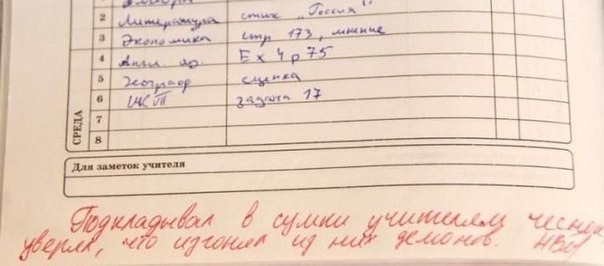 2 Литература стих „Россия"
3 Экономика стр 173, мнение
4 Англ. яз. Ex 4 p 75
5 Географ сценка
6 ИКТ задача 17
7
8
СРЕДА
Для заметок учителя
Подкладывал в сумки учителям чеснок
уверял, что изгонял из них демонов.